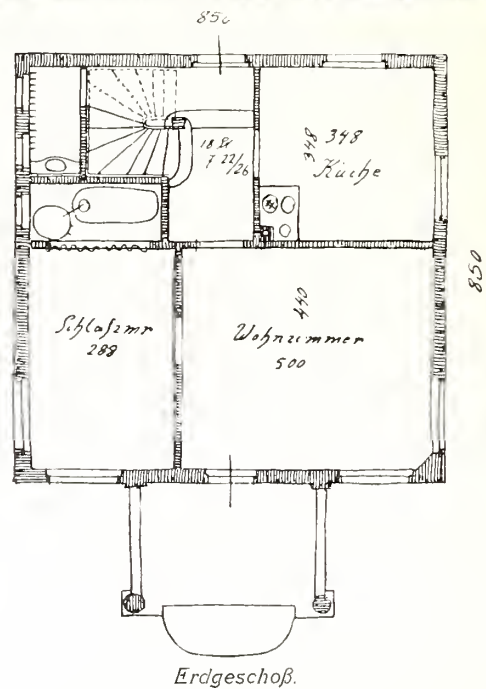 850
18 St
7 22/26
348
348
Küche
850
Schlafzmr
288
440
Wohnzimmer
500
Erdgeschoß.